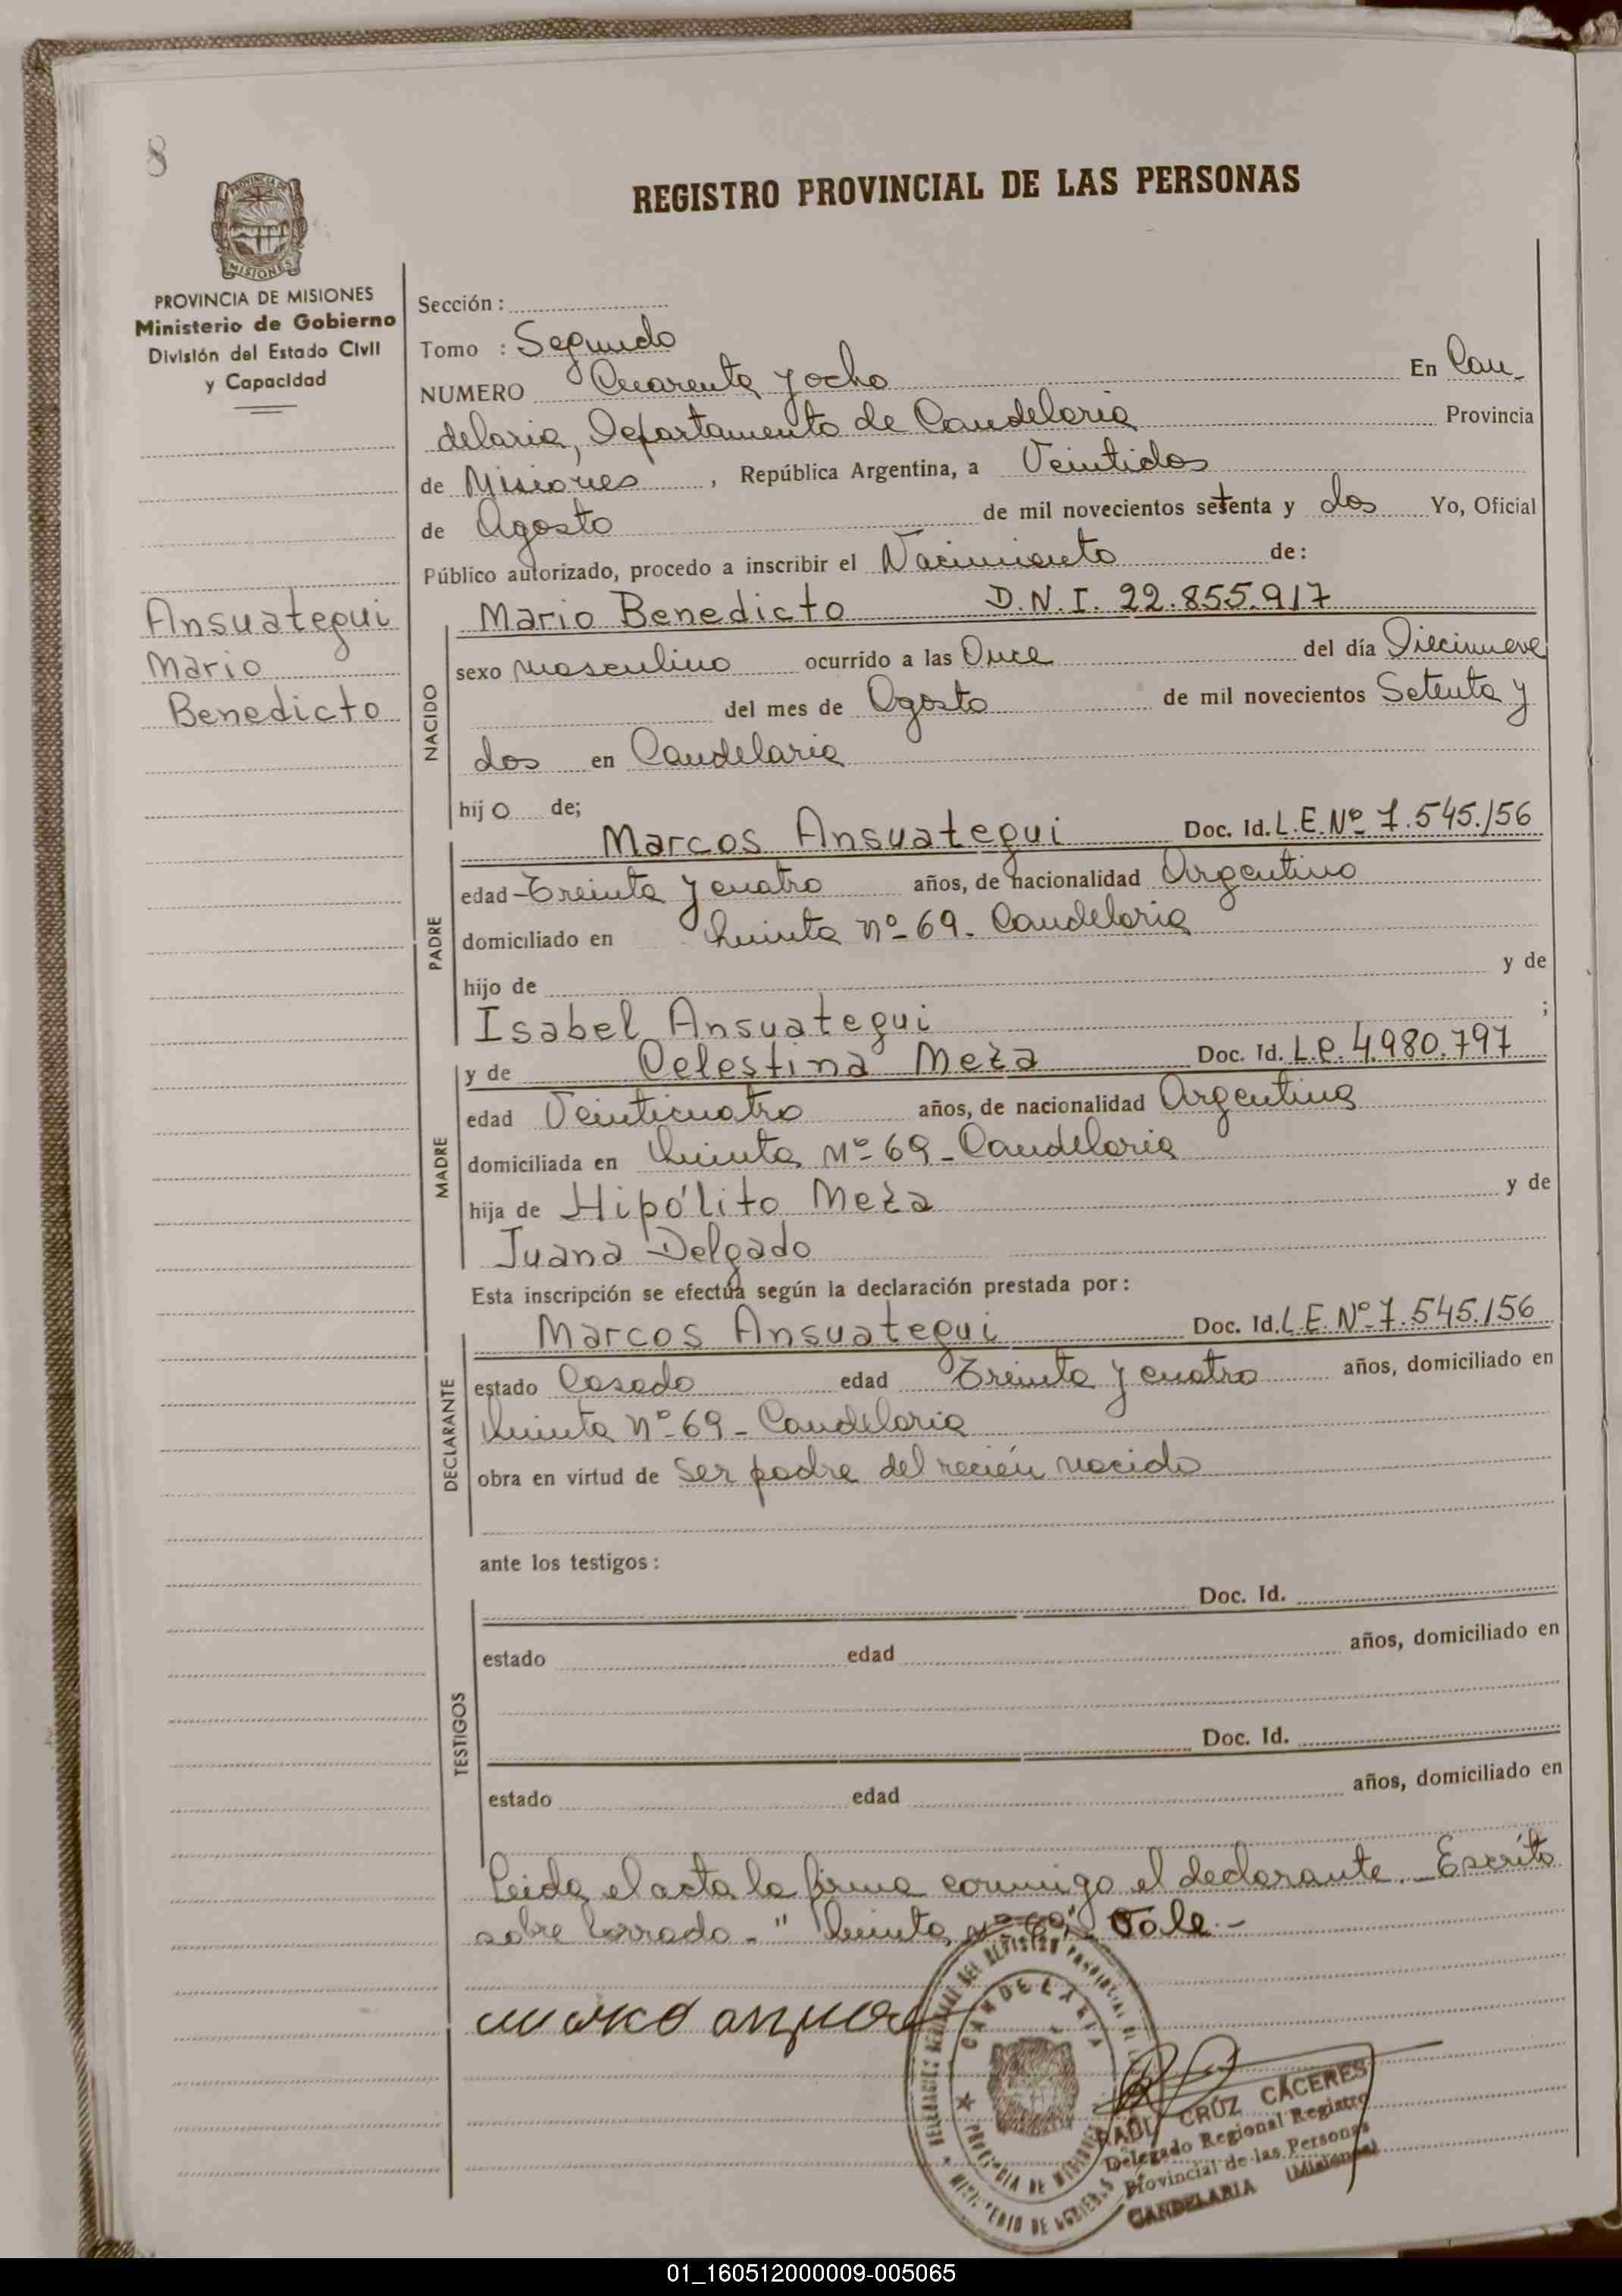 8
REGISTRO PROVINCIAL DE LAS PERSONAS
PROVINCIA DE
MISIONES
PROVINCIA DE MISIONES
Ministerio de Gobierno
División del Estado Civil
y Capacidad
Ansuategui
Mario
Benedicto
Sección :
Tomo : Segundo
NUMERO Cuarenta y ocho En Can-
delaria, Departamento de Candelaria Provincia
de Misiones , República Argentina, a Veintidos
de Agosto de mil novecientos setenta y dos Yo, Oficial
Público autorizado, procedo a inscribir el Nacimiento de:
Mario Benedicto D.N.I. 22.855.917
NACIDO
sexo masculino ocurrido a las Once del día Diecinueve
del mes de Agosto de mil novecientos Setenta y
dos en Candelaria
hijo de;
Marcos Ansuategui Doc. Id. L.E. Nº 7.545.156
PADRE
edad Treinta y cuatro años, de nacionalidad Argentino
domiciliado en Quinta nº 69. Candelaria
hijo de y de
Isabel Ansuategui ;
y de Celestina Meza Doc. Id. L.C. 4.980.797
MADRE
edad Veinticuatro años, de nacionalidad Argentina
domiciliada en Quinta Nº 69 - Candelaria
hija de Hipólito Meza y de
Juana Delgado
Esta inscripción se efectúa según la declaración prestada por :
Marcos Ansuategui Doc. Id. L.E. Nº 7.545.156
DECLARANTE
estado Casado edad Treinta y cuatro años, domiciliado en
Quinta nº 69 - Candelaria
obra en virtud de ser padre del recién nacido
ante los testigos :
Doc. Id.
TESTIGOS
estado edad años, domiciliado en
Doc. Id.
estado edad años, domiciliado en
Leida el acta la firma conmigo el declarante. Escrito
sobre borrado - " Quinta nº 69" Vale -
CANDELARIA
PROVINCIA DE MISIONES
MINISTERIO DE GOBIERNO
RAUL CRUZ CACERES
Delegado Regional Registro
Provincial de las Personas
CANDELARIA (Misiones)
01_160512000009-005065